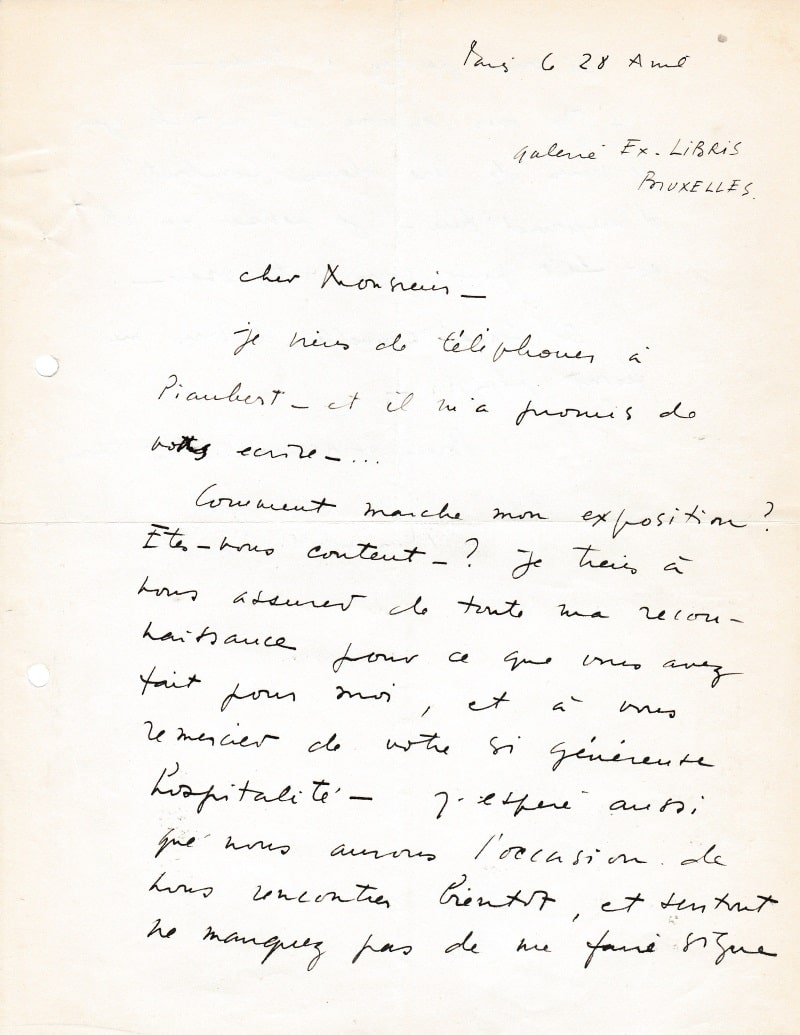 Paris le 28 Avril
Galerie Ex-LIBRIS
BRUXELLES.
cher Monsieur _
je viens de téléphoner à
Piaubert _ et il m'a promis de
vous ecrire _ ...
Comment marche mon exposition ?
Etes-vous content _ ? je tiens à
vous assurer de toute ma recon-
naissance pour ce que vous avez
fait pour moi, et à vous
remercier de votre si généreuse
hospitalité _ j'espere aussi
que nous aurons l'occasion de
nous rencontrer bientôt, et surtout
ne manquez pas de me faire signe